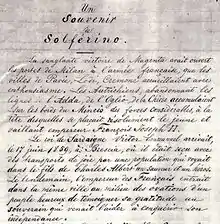 Un
Souvenir
de
Solférino.
La sanglante victoire de Magenta avait ouvert
les portes de Milan à l'armée française, que les
villes de Pavie, Lodi, Crémone accueillaient avec
enthousiasme. Les Autrichiens, abandonnant les
lignes de l'Adda, de l'Oglio, de la Chiese accumulaient
sur les bords du Mincio des forces considérables, à la
tête desquelles se plaçait résolument le jeune et
vaillant empereur François Joseph II.
Le roi de Sardaigne Victor Emmanuel arrivait le
17 juin 1859 à Brescia, où il était reçu avec
des transports de joie par une population qui voyait
dans le fils de Charles Albert un
Le lendemain, l'empereur des Français entrait
dans la même ville au milieu des ovations d'un
peuple heureux de témoigner sa gratitude au
souverain qui venait l'aider à conquérir son
indépendance.